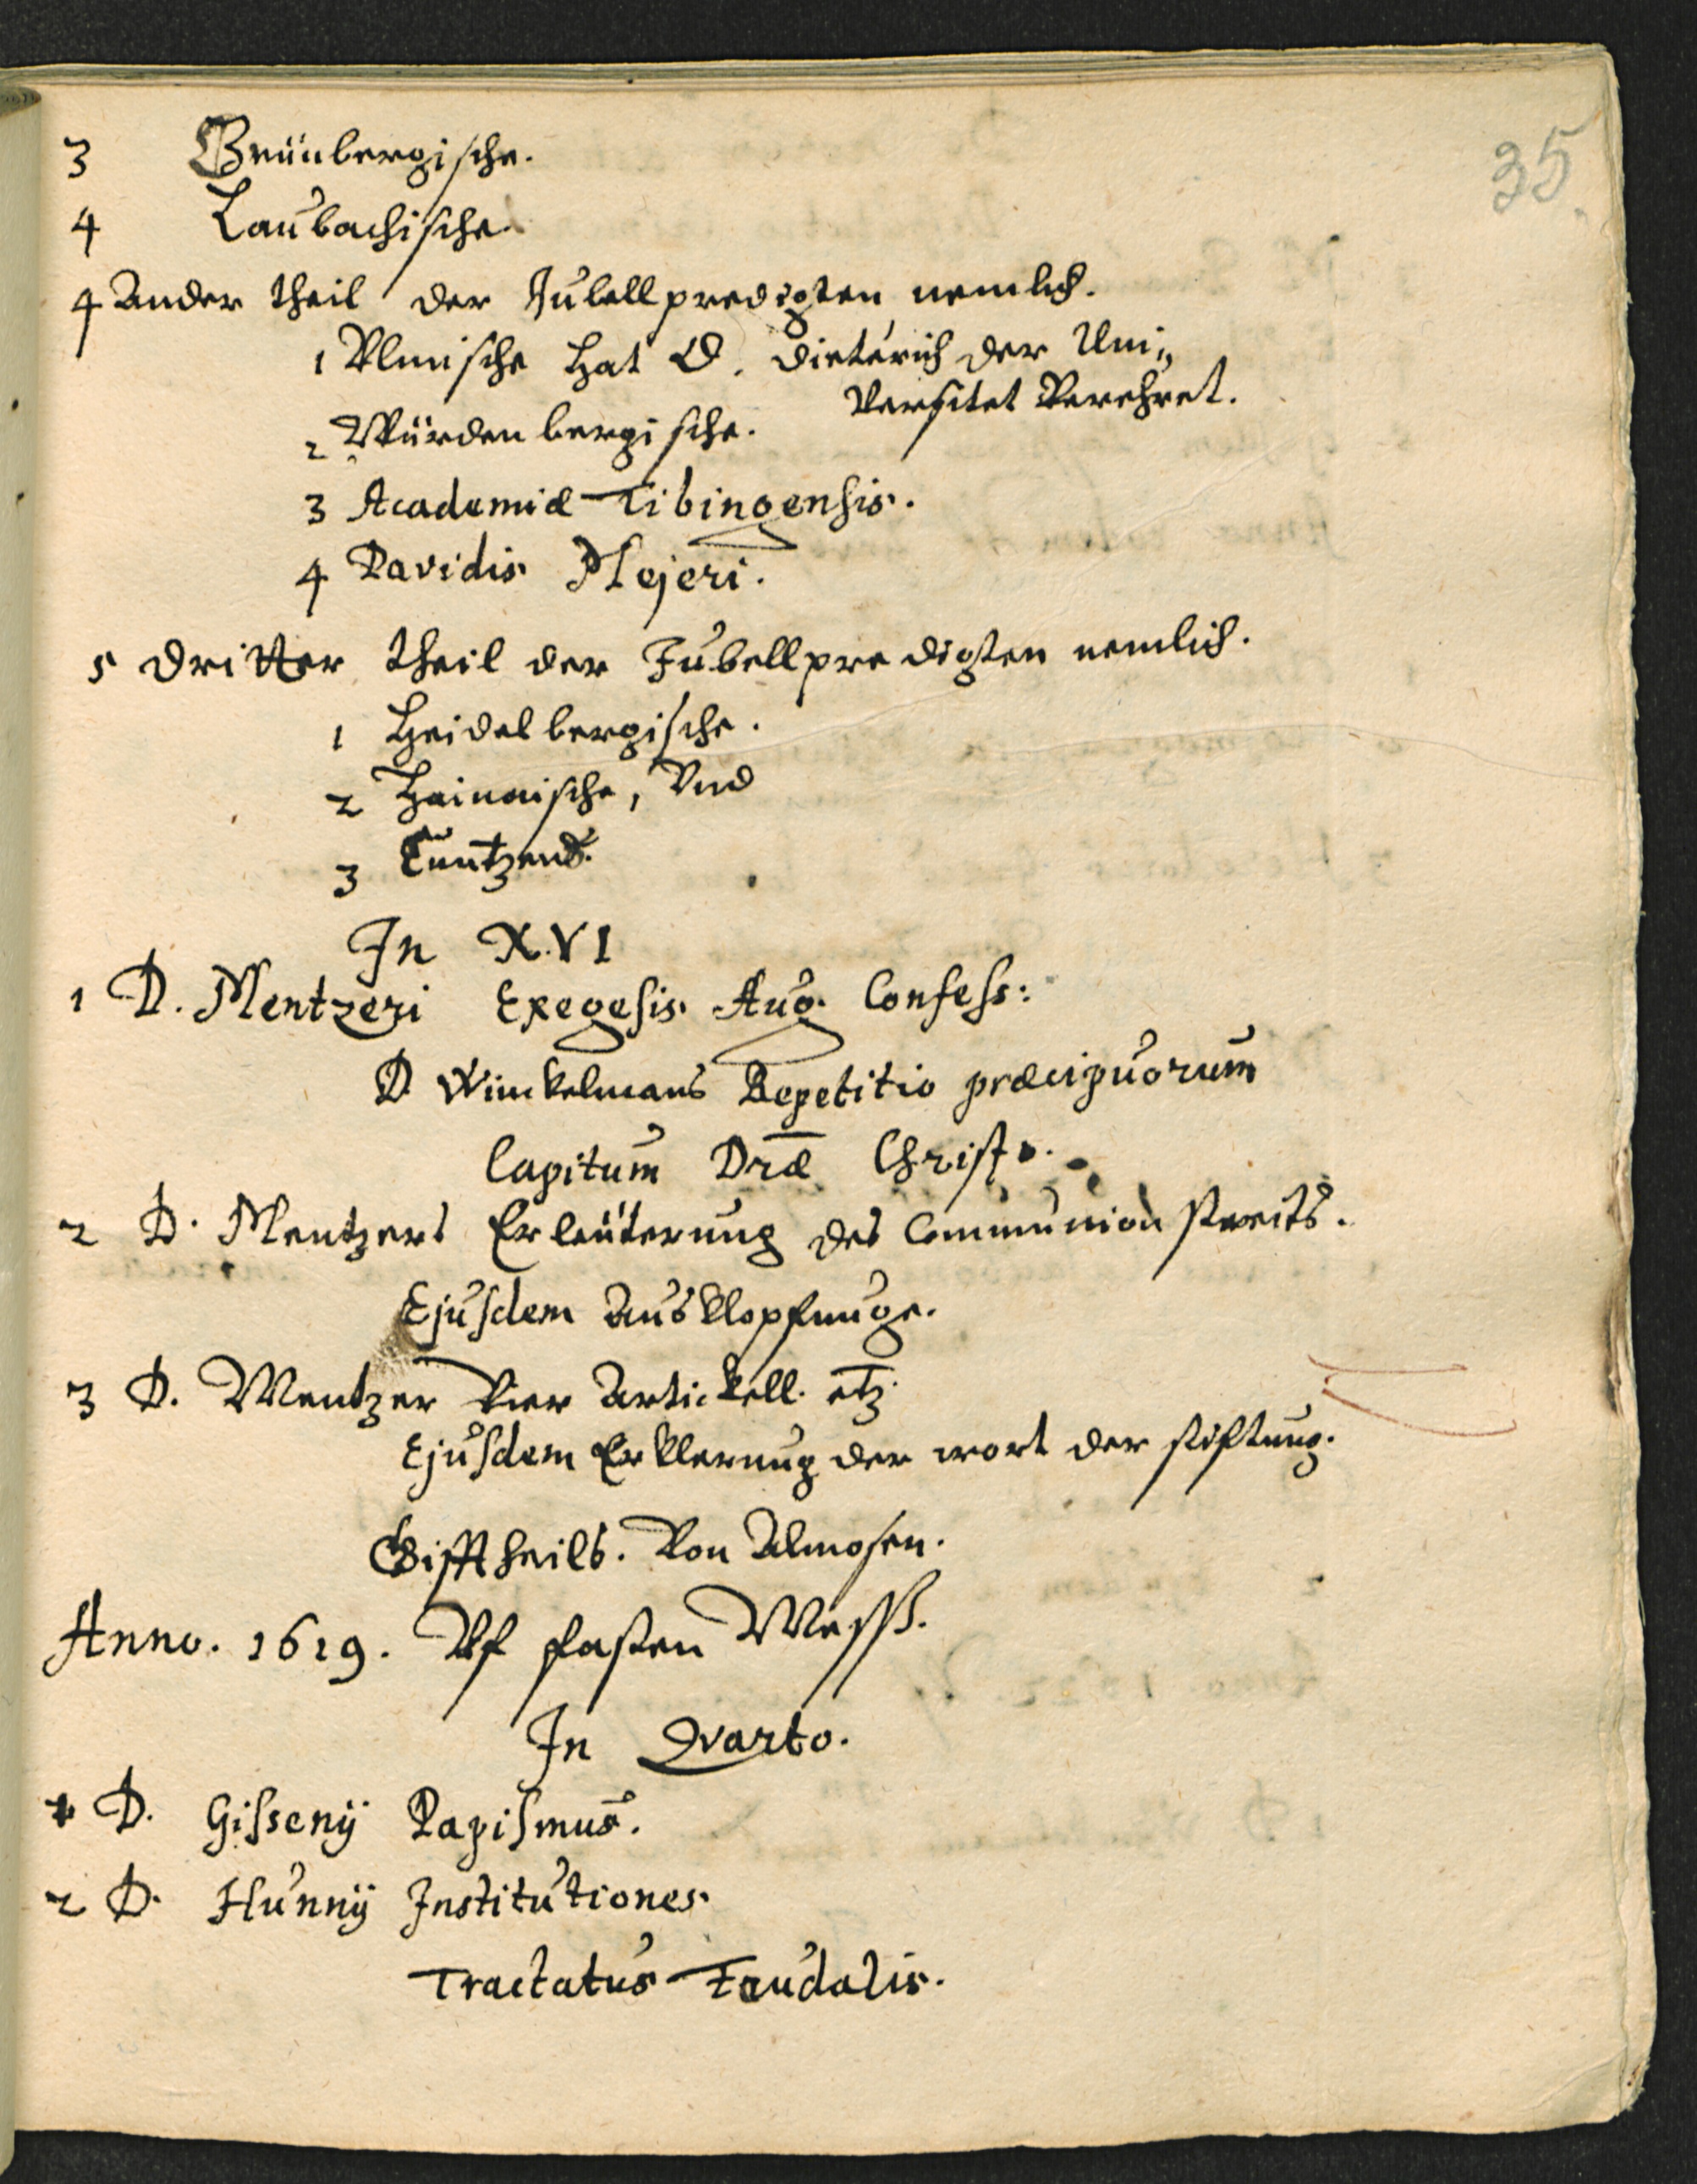 35
3 Grünbergische.
4 Laubachische
4 Ander theil der Jubellpredigten nemlich.
1 Vlmische hat D. Dieterich der Uni„
versitet verehret.
2 Würdenbergische.
3 Academiæ Tibingensis.
4 Davidis Mejeri.
5 Dritter theil der Jubellpredigten nemlich.
1 Heidelbergische.
2 Hainaische, Vnd
3
In XVI
1 D. Mentzeri Exegesis Aug. Confess:
D Winckelmans Repetitio præcipuorum
Capitum Dræ Christ.
2 D. Mentzers Erleüterung des Communion streits.
Ejusdem Ausklopfunge.
3 D. Mentzer Vier Artickell. etz.
Ejusdem Erklerung der wort der stiftung.
Gifftheils. Von Almosen.
Anno. 1619. Vf fasten Messß.
In Qvarto.
1 D. Gissenij Papismus.
2 D. Hunnij Institutiones.
Tractatus Feudalis.